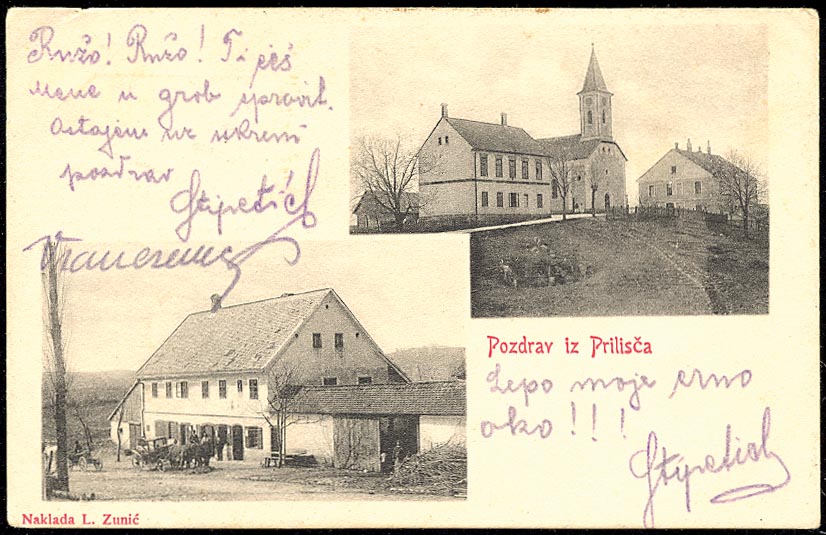 Ružo! Ružo! Ti ćeš
mene u grob spravit.
Ostajem uz iskreni
pozdrav
Stipetić
Pozdrav iz Prilisča
Lepo moje crno
oko!!!
Stipetić
Naklada L. Zunić